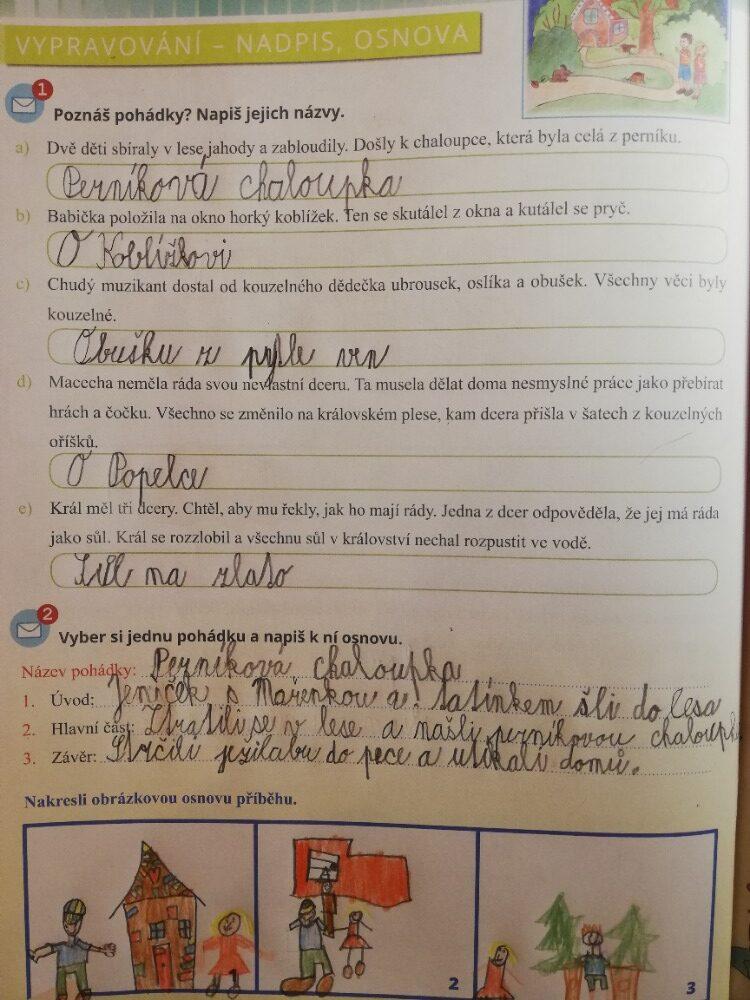 VYPRAVOVÁNÍ – NADPIS, OSNOVA
1
Poznáš pohádky? Napiš jejich názvy.
a) Dvě děti sbíraly v lese jahody a zabloudily. Došly k chaloupce, která byla celá z perníku.
Perníková chaloupka
b) Babička položila na okno horký koblížek. Ten se skutálel z okna a kutálel se pryč.
O Koblížkovi
c) Chudý muzikant dostal od kouzelného dědečka ubrousek, oslíka a obušek. Všechny věci byly
kouzelné.
Obušku z pytle ven
d) Macecha neměla ráda svou nevlastní dceru. Ta musela dělat doma nesmyslné práce jako přebírat
hrách a čočku. Všechno se změnilo na královském plese, kam dcera přišla v šatech z kouzelných
oříšků.
O Popelce
e) Král měl tři dcery. Chtěl, aby mu řekly, jak ho mají rády. Jedna z dcer odpověděla, že jej má ráda
jako sůl. Král se rozzlobil a všechnu sůl v království nechal rozpustit ve vodě.
Sůl na zlato
2
Vyber si jednu pohádku a napiš k ní osnovu.
Název pohádky: Perníková chaloupka
1. Úvod: Jeníček s Mařenkou a tatínkem šli do lesa
2. Hlavní část: Ztratili se v lese a našli perníkovou chaloupk
3. Závěr: Strčili ježibabu do pece a utíkali domů.
Nakresli obrázkovou osnovu příběhu.
1 2 3